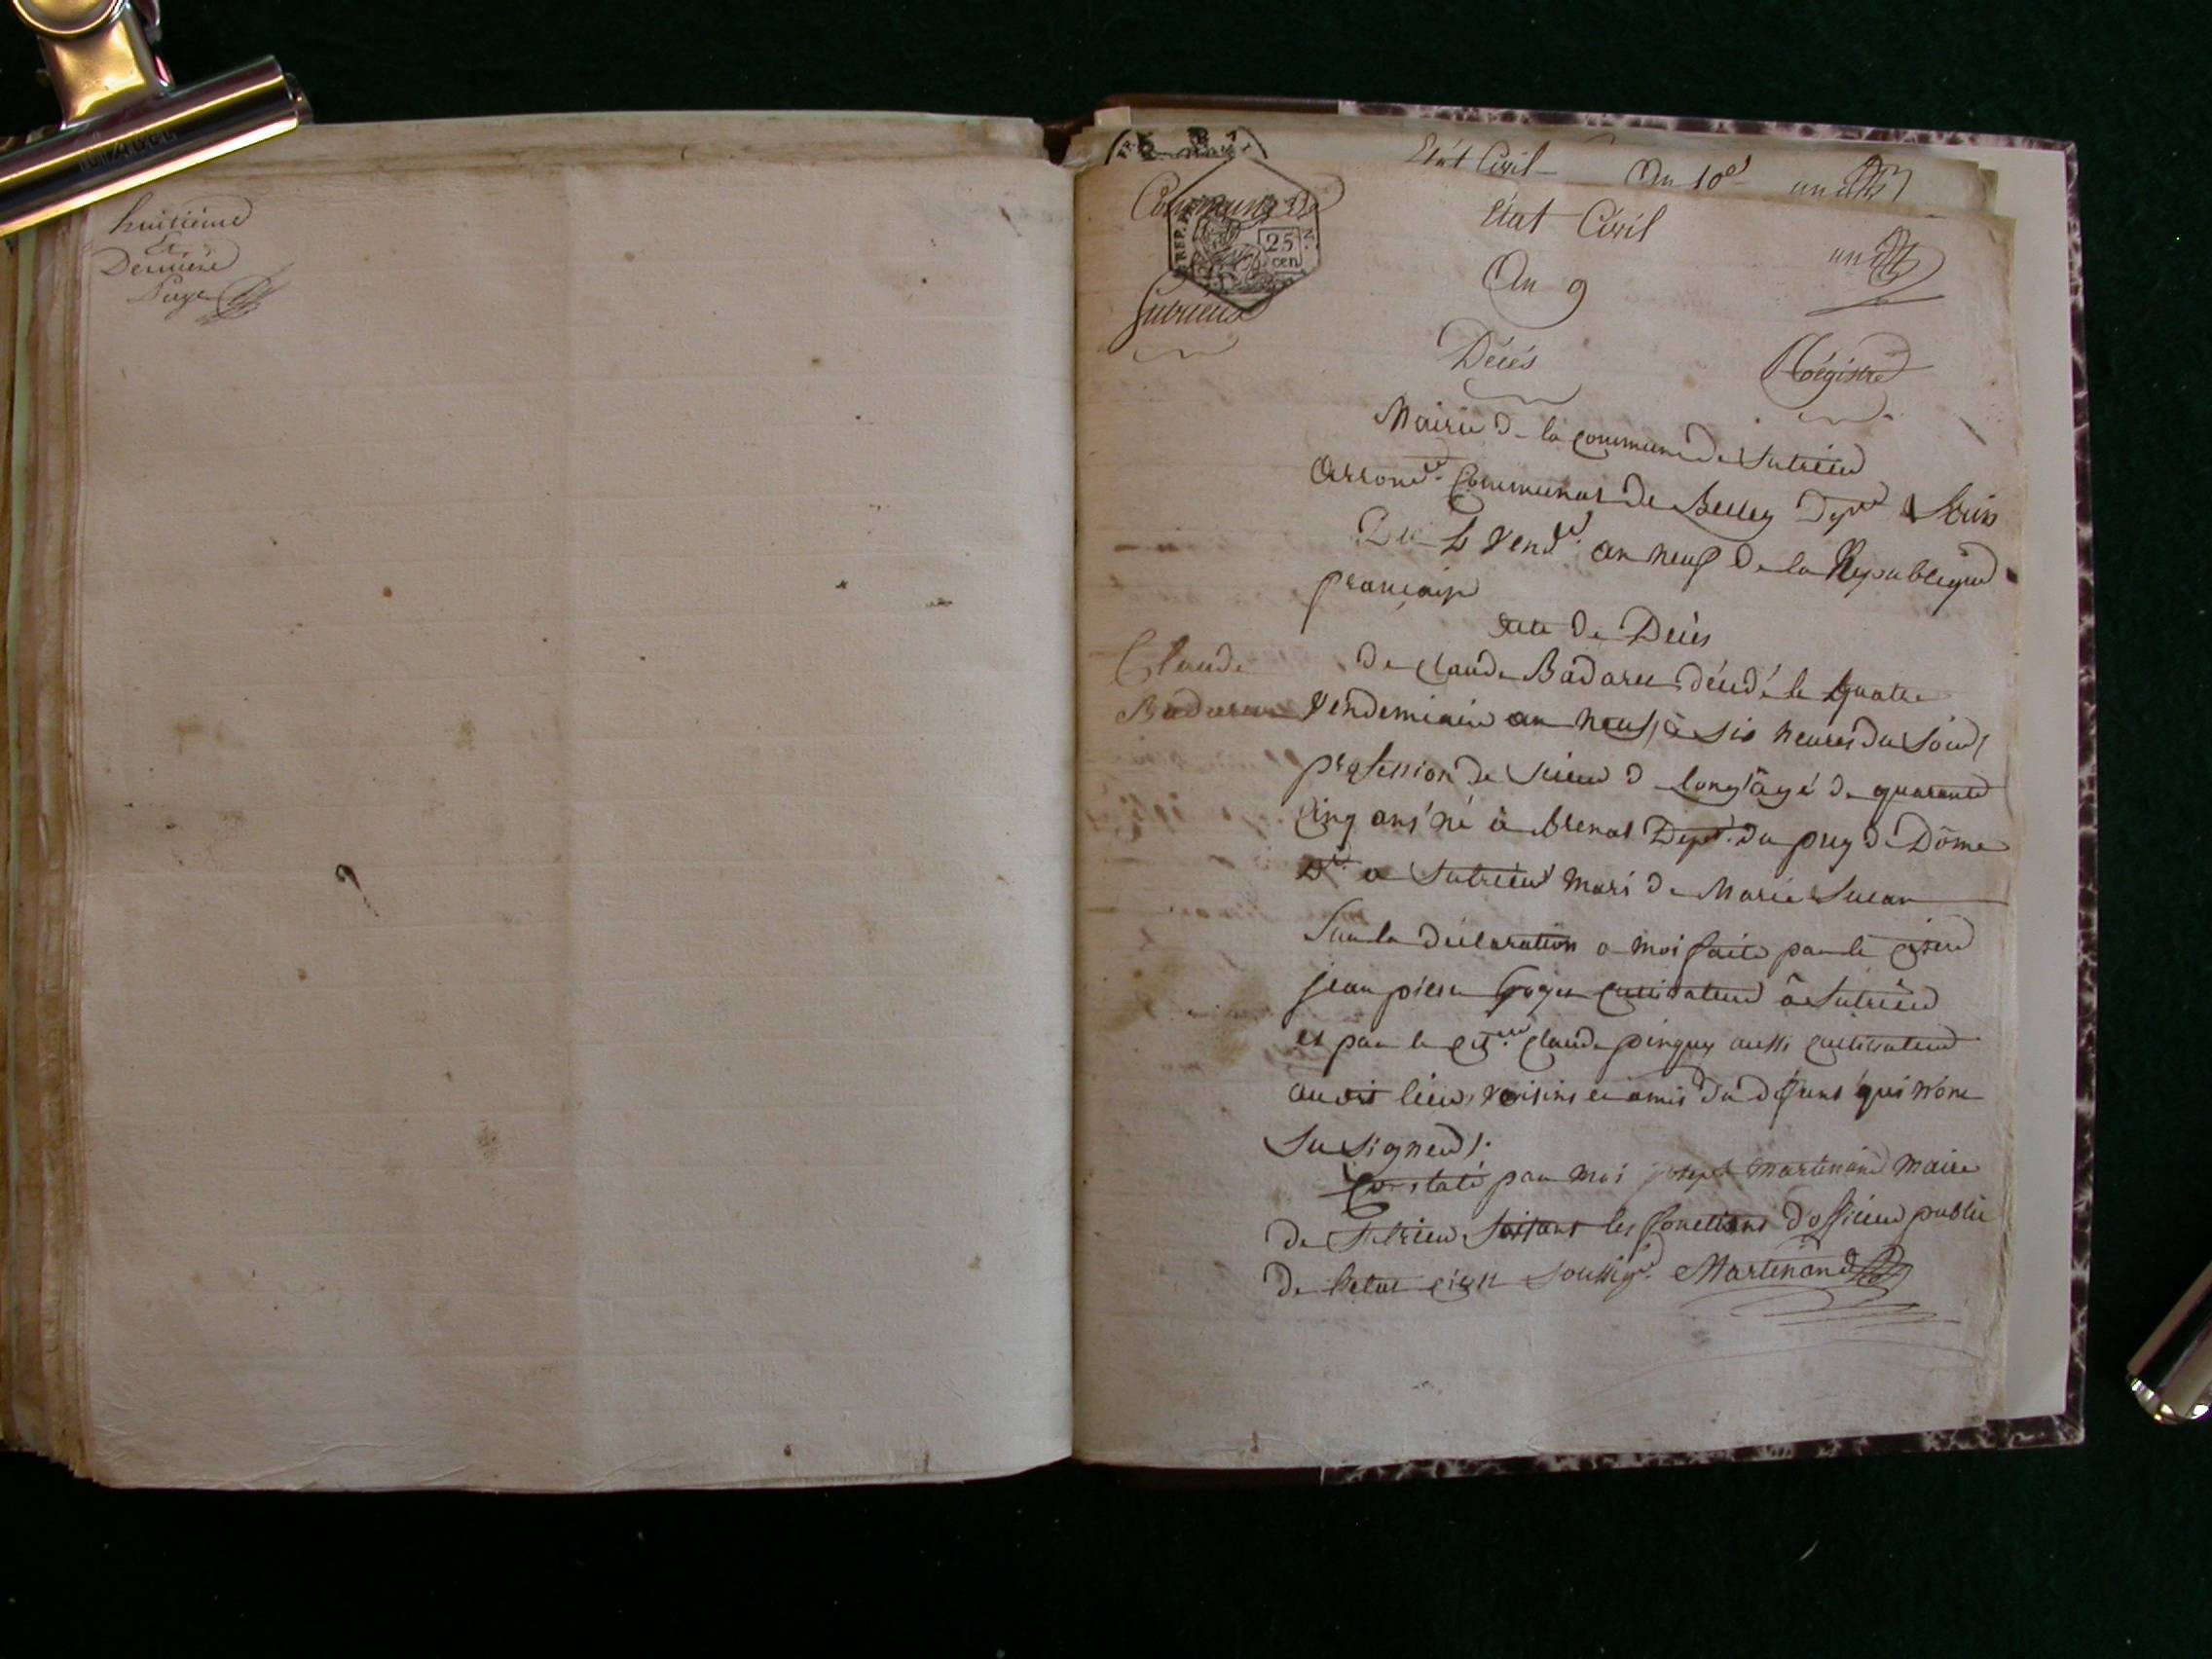 huitième
et
Dernière
Page
Etat Civil An 10e un
Commune de
REP. FRA.
25
cen
Sutrieux
Etat Civil
un
An 9
Décés
Régistre
Mairie de la commune de Sutrieu
Arrond.t Communal de Belley Dep.t
Du 4 vend.re an neuf de la Republique
française
acte de Décés
Claude
Badareu
de claude Badareu décédé le quatre
vendemiaire an neuf à six heures du soir,
profession de scieur de long, âgé de quarante
Cinq ans né à Brenat Dep.t du puy de Dôme
D.t a Sutrieu mari de Marie
Sur la déclaration a moi faite par le
jean pierre cultivateur à Sutrieu
et par le cit.en claude pinguy aussi cultivateur
audit lieu, voisins et amis du défunt qui n'ont
su signer ⁄.
Constaté par moi joseph martinand Maire
de Sutrieu faisant les fonctions d'officier public
de l'etat civil soussig.é Martinand